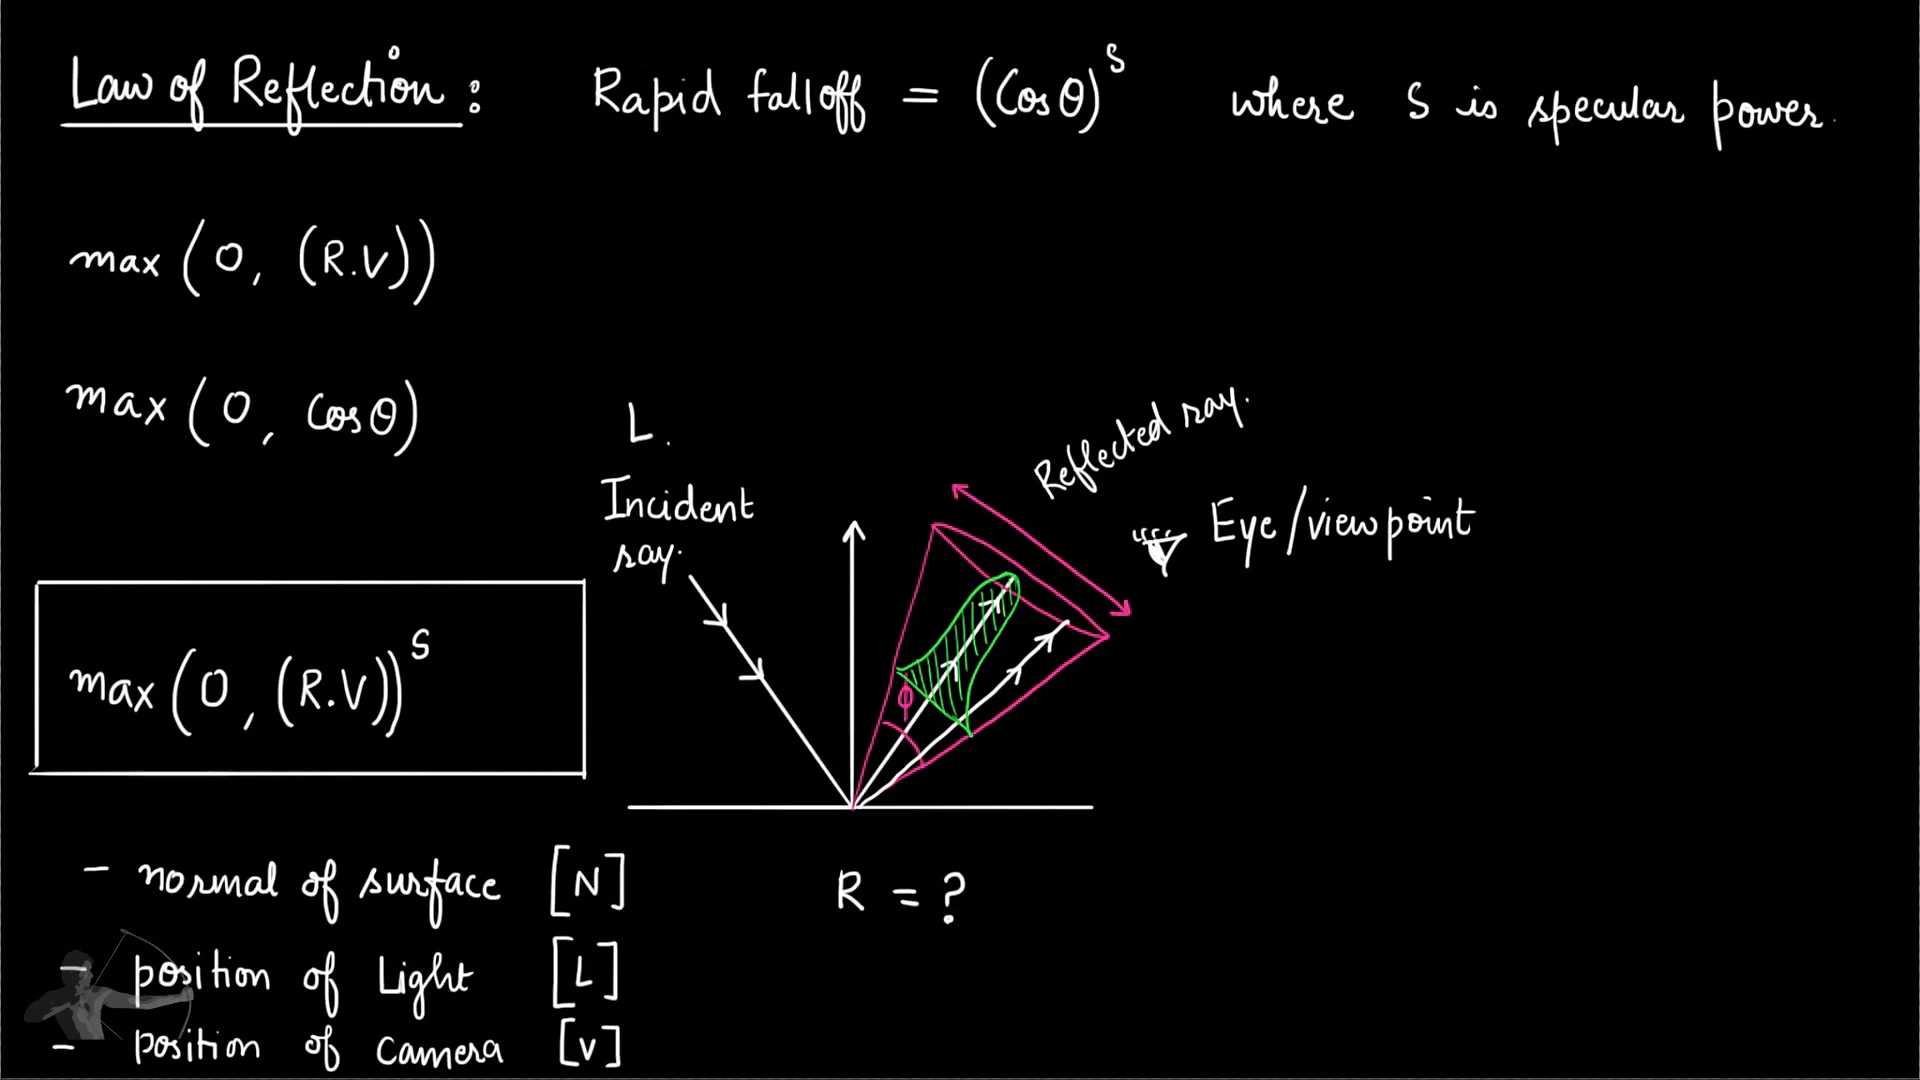 Law of Reflection : Rapid falloff = (Cosθ)^S where S is specular power.
max (0, (R.V))
max (0, Cosθ)
L.
Incident
ray.
Reflected ray.
Eye/viewpoint
ϕ
max (0, (R.V))^S
- normal of surface [N]
R = ?
- position of Light [L]
- position of camera [V]